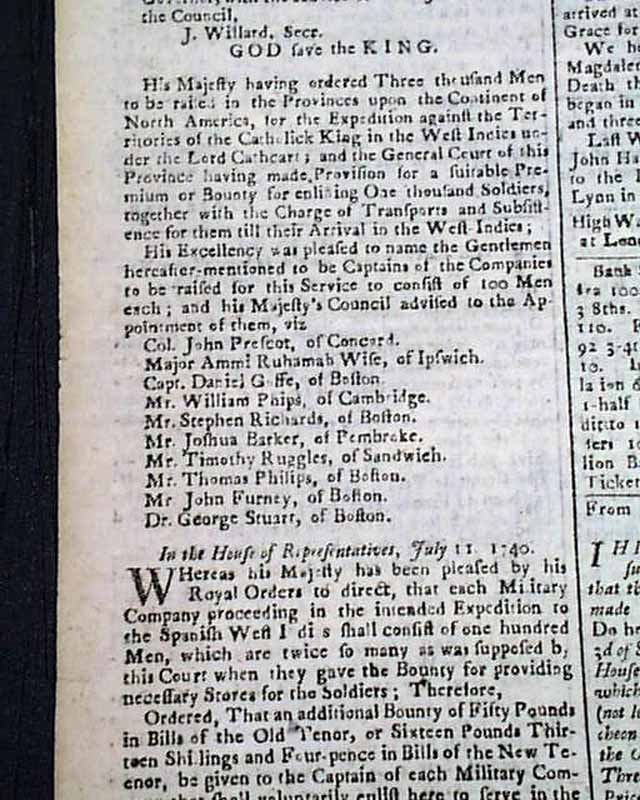 the Council,
J. Willard, Secr.
GOD ſave the KING.
His Majeſty having ordered Three thouſand Men
to be raiſed in the Provinces upon the Continent of
North America, for the Expedition againſt the Ter-
ritories of the Catholick King in the Weſt Indies un-
der the Lord Cathcart; and the General Court of this
Province having made Proviſion for a ſuitable Pre-
mium or Bounty for enliſting One thouſand Soldiers,
together with the Charge of Tranſports and Subſiſt-
ence for them till their Arrival in the Weſt-Indies;
His Excellency was pleaſed to name the Gentlemen
hereafter-mentioned to be Captains of the Companies
to be raiſed for this Service to conſiſt of 100 Men
each; and his Majeſty's Council adviſed to the Ap-
pointment of them, viz
Col. John Preſcot, of Concord.
Major Ammi Ruhamah Wiſe, of Ipſwich.
Capt. Daniel G ffe, of Boſton.
Mr. William Phips, of Cambridge.
Mr. Stephen Richards, of Boſton.
Mr. Joſhua Barker, of Pembroke.
Mr. Timothy Ruggles, of Sandwich.
Mr. Thomas Philips, of Boſton.
Mr John Furney, of Boſton.
Dr. George Stuart, of Boſton.
In the House of Repreſentatives, July 11. 1740.
WHereas his Majeſty has been pleaſed by his
Royal Orders to direct, that each Military
Company proceeding in the intended Expedition to
the Spaniſh Weſt I di s ſhall conſiſt of one hundred
Men, which are twice ſo many as was ſuppoſed b,
this Court when they gave the Bounty for providing
neceſſary Stores for the Soldiers; Therefore,
Ordered, That an additional Bounty of Fifty Pounds
in Bills of the Old Tenor, or Sixteen Pounds Thir-
teen Shillings and Four-pence in Bills of the New Te-
enor, be given to the Captain of each Military Com-
that ſhall voluntarily enliſt here to ſerve in the
arrived at
Grace for
We h
Magdalen
Death th
began in
and three
Laſt W
John Ha
to the
Lynn in
High Wa
at Lond
Bank
100
3 8ths.
110.
92 3-4t
10.
la ion
1-half
dit to
ſers 10
lion B
Ticket
From
I HI
ſu
that ti
made
Do he
3d of S
Houſe
which
(not
cheon
the
Thre
Price